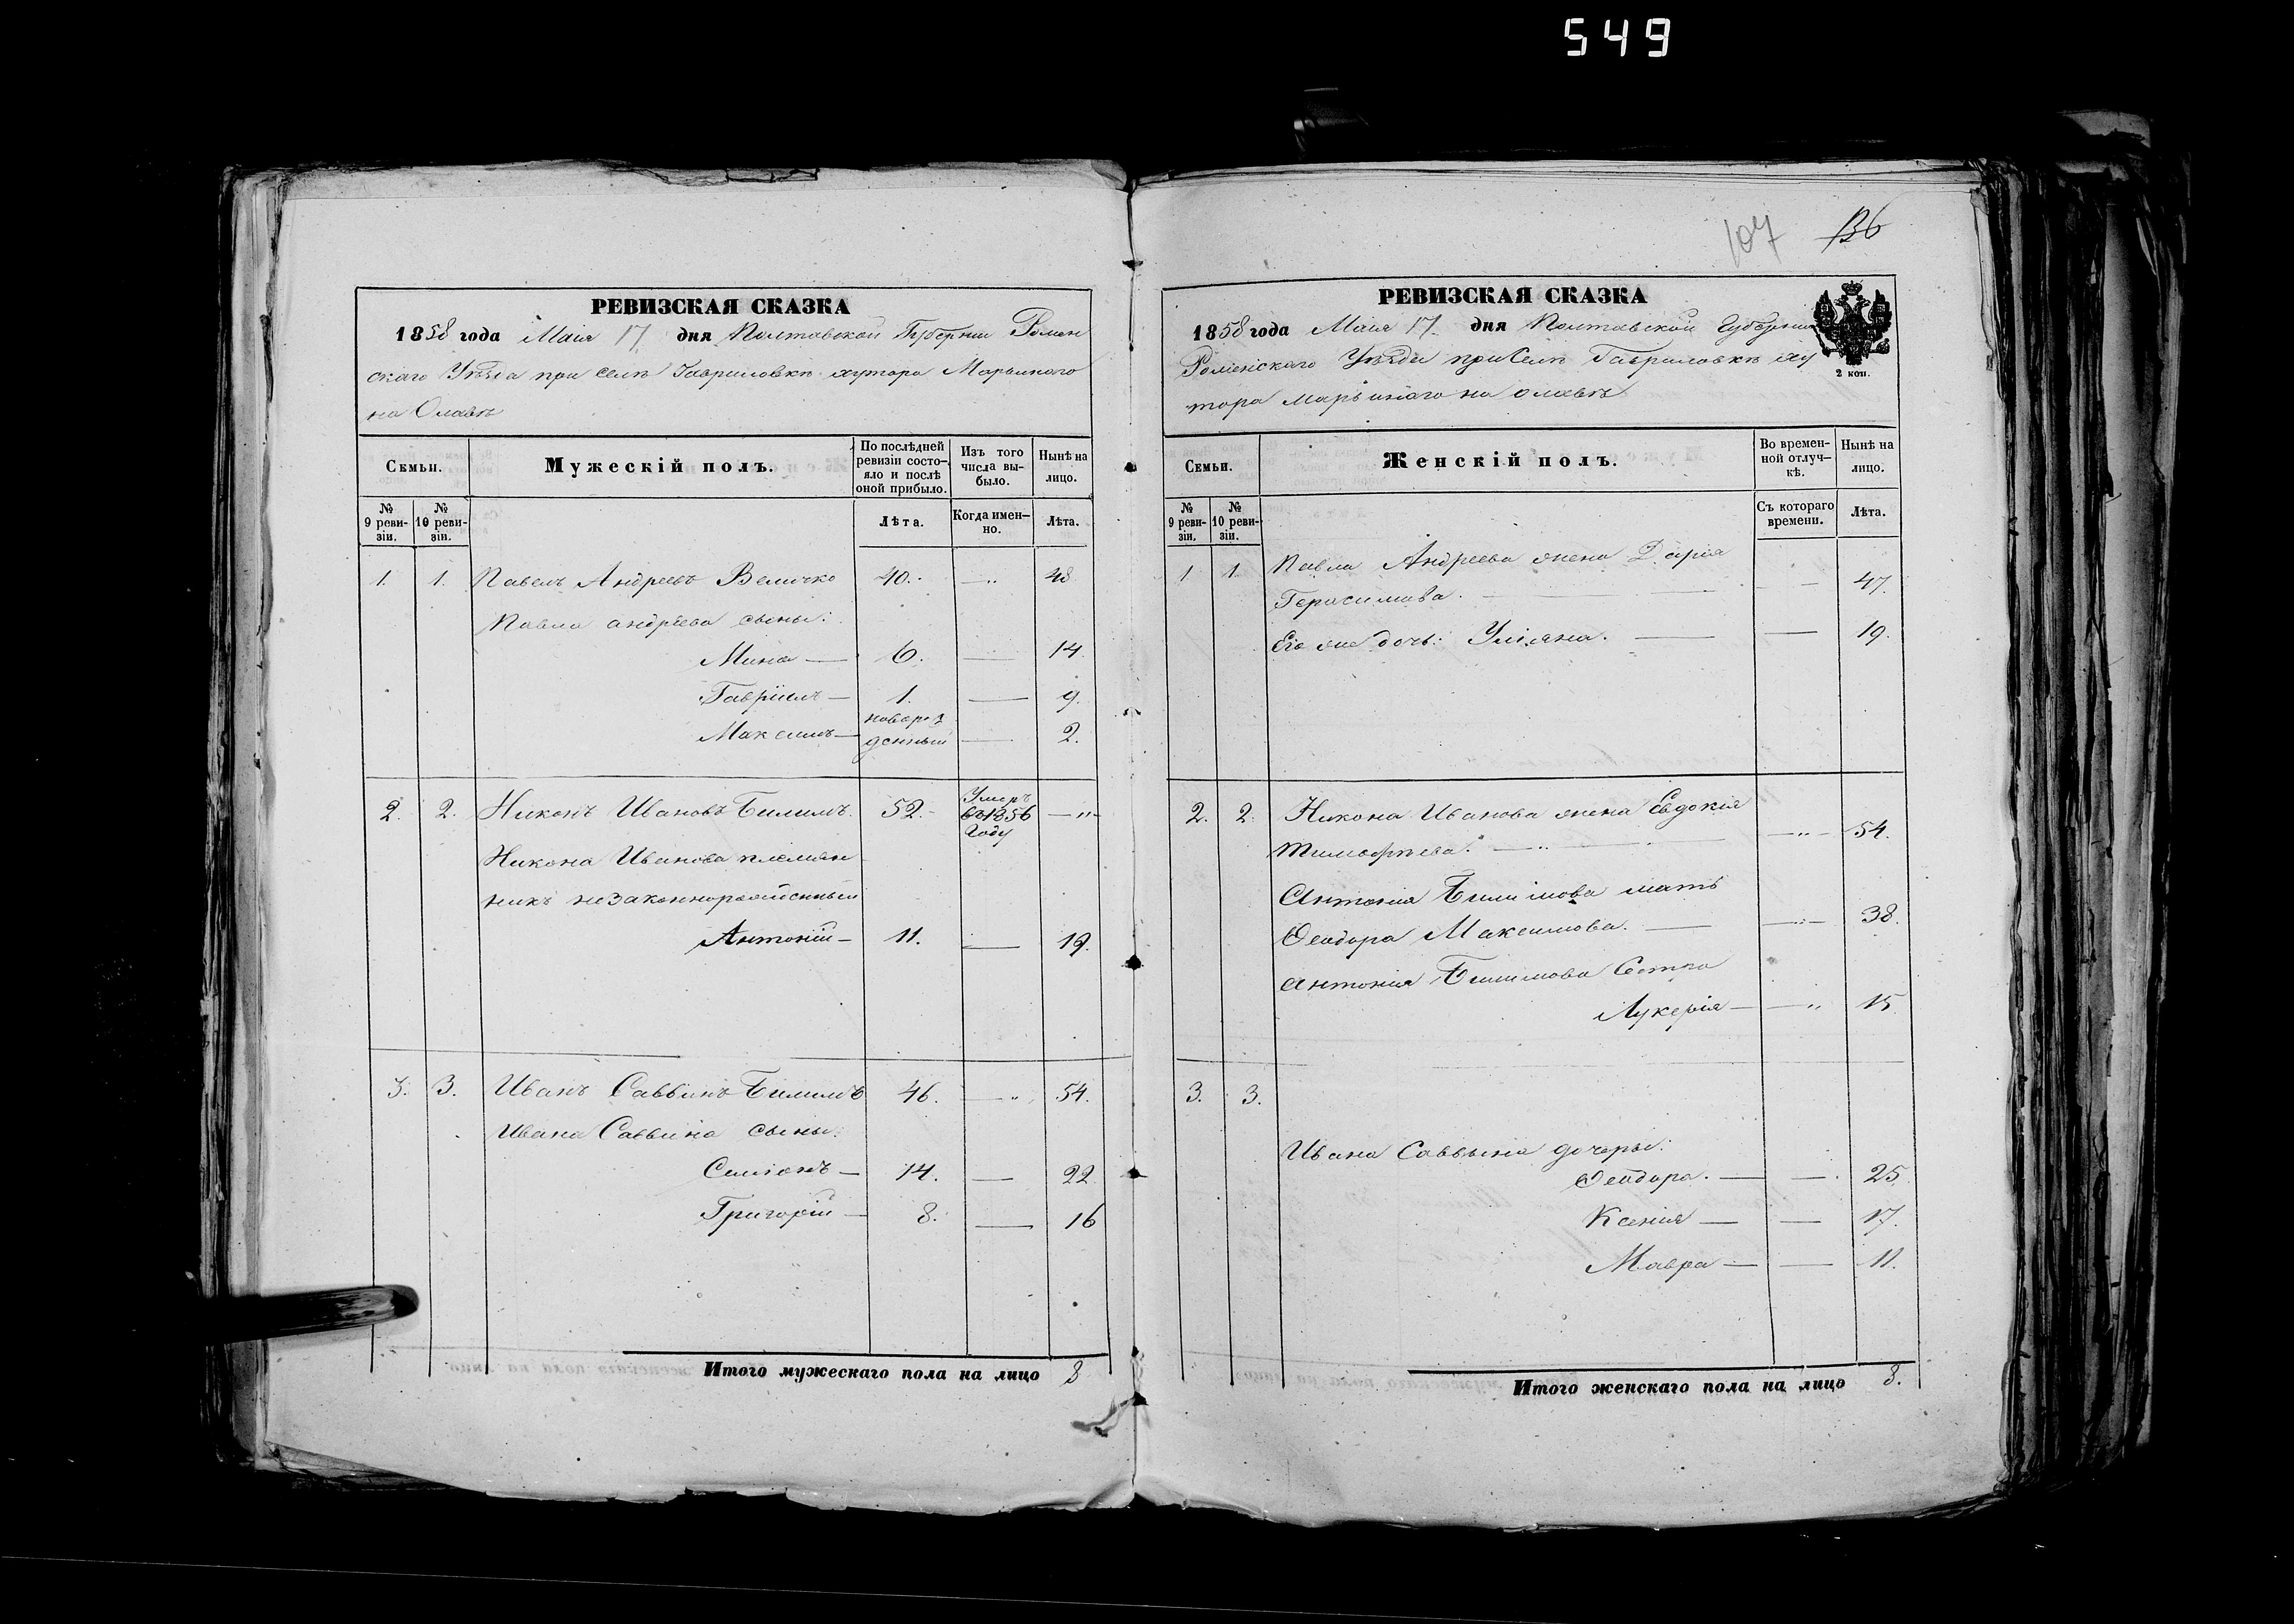 549
107 136
РЕВИЗСКАЯ СКАЗКА
1858 года Маія 17 дня Полтавской Губерніи Ромен
скаго Уѣзда при селѣ Гавриловкѣ хутора Марьинаго
на Олавѣ
Семьи.
Мужескій полъ.
По послѣдней ревизіи состо-
яло и послѣ
оной прибыло.
Изъ того
числа вы-
было.
Нынѣ на
лицо.
№ 9 реви-
зіи.
№ 10 реви-
зіи.
Лѣта.
Когда имен-
но.
Лѣта.
1. 1. Павелъ Андреевъ Величко 40. — " 48
Павла андреева сыны:
Мина — 6. — 14.
Гавріилъ — 1. — 9.
Максимъ — новорож
денный — 2.
2. 2. Никонъ Ивановъ Билимъ. 52. Умеръ
въ 1856
Году — " —
Никона Иванова племян
никъ незаконнорожденный
Антоній — 11. — 19.
3. 3. Иванъ Саввинъ Билимъ 46. — " 54.
Ивана Саввина сыны:
Симіонъ — 14. — 22
Григорій — 8. — 16
Итого мужескаго пола на лицо 8
РЕВИЗСКАЯ СКАЗКА
1858 года Маія 17 дня Полтавской Губерніи
Роменскаго Уѣзда при Селѣ Гавриловкѣ ху
тора Марьинаго на олавѣ
2 коп.
Семьи.
Женскій полъ.
Во времен-
ной отлуч-
кѣ.
Нынѣ на
лицо.
№ 9 реви-
зіи.
№ 10 реви-
зіи.
Съ котораго
времени.
Лѣта.
1 1. Павла Андреева жена Дарія
Герасимова. — — 47.
Его же дочь: Уліяна. — — 19.
2. 2. Никона Иванова жена Евдокія
Тимофѣева. — " — — " — 54.
Антонія Билимова мать
Феодора Максимова. — — 38.
Антонія Билимова Сестра
Лукерія — — " 15.
3. 3.
Ивана Саввина дочеры:
Феодора. — — 25.
Ксенія — — 17.
Мавра — — 11.
Итого женскаго пола на лицо 8.